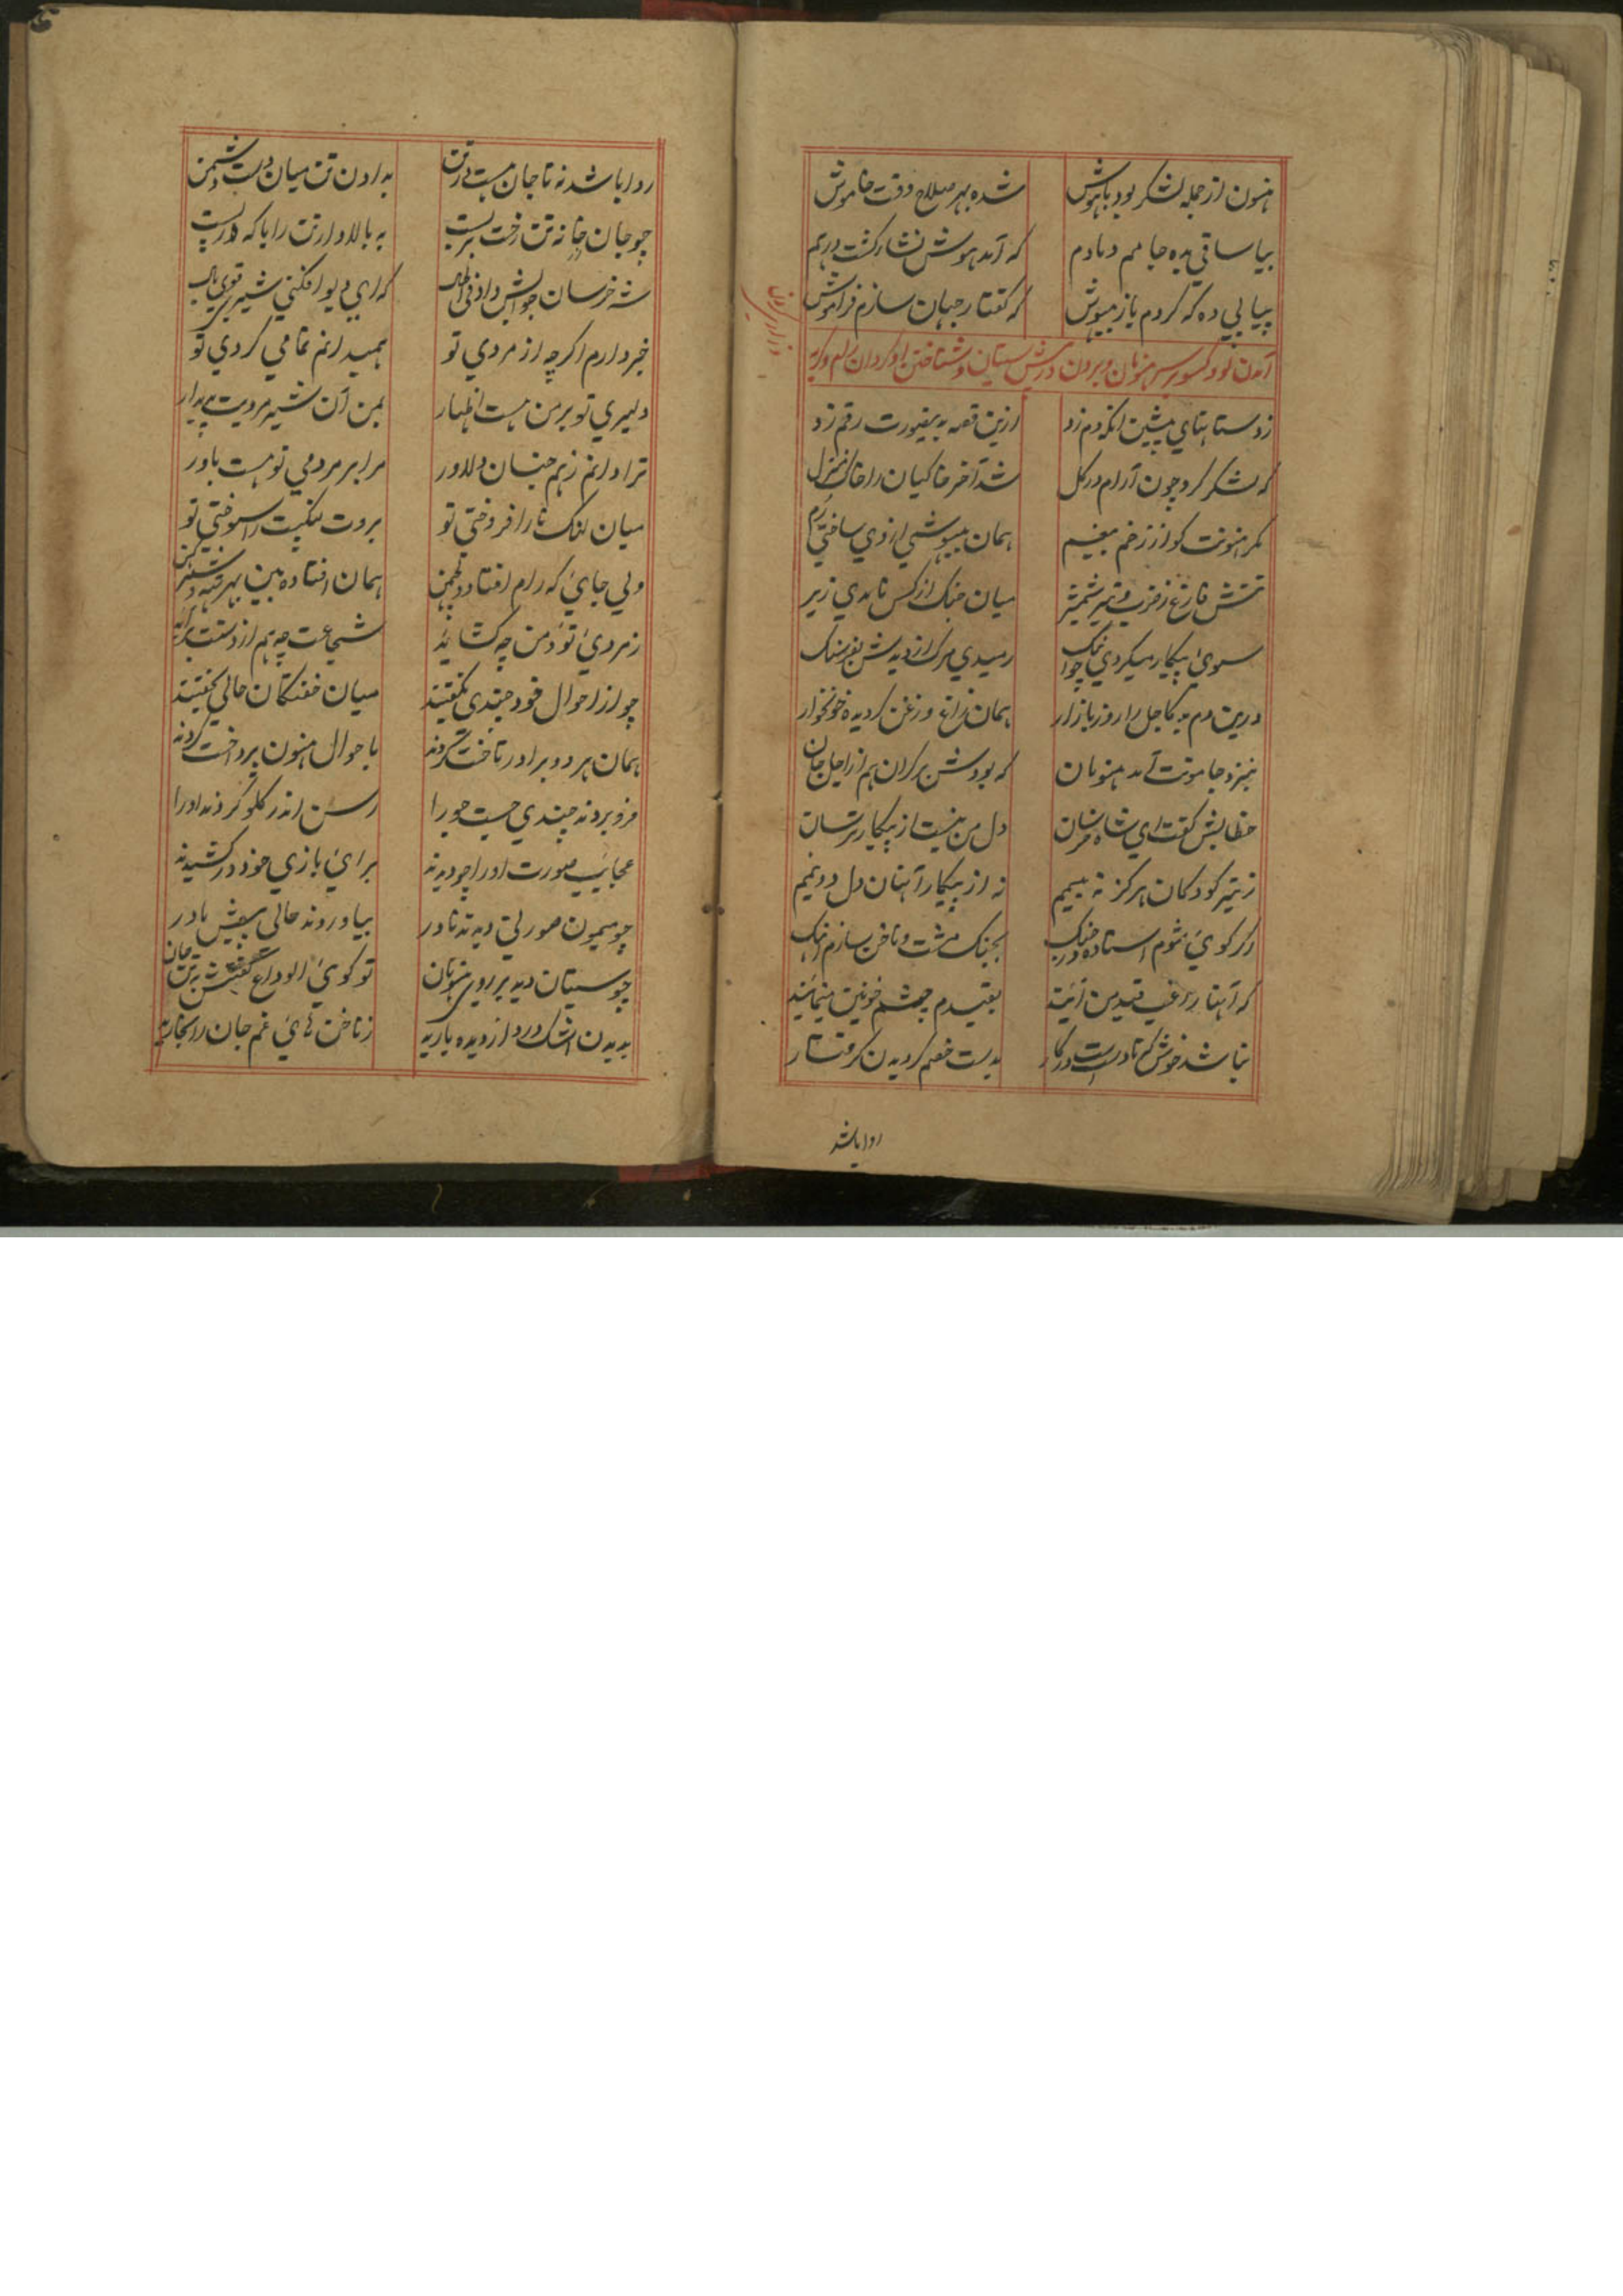 هنون از جمله لشکر بود باهوش شده بهر صلاح وقت خاموش
بیا ساقی بده جامم دمادم که آمد هوش نشا رکشت درهم
پیاپی ده که کردم باز بیهوش که کفتار جهان سازم فراموش
آمدن لو و کسو بر سر هنونان و بردن پیش سیتان و شناختن او کردان رام و کریه
زدستانهای پیشین انکه دم زد ازین قصه بدینصورت رقم زد
که لشکر کرد چون آرام در کل شد آخر خاکیان را خاک منزل
مکر هنونت کو از زخم بیغم همان بیهوشی از وی ساختی رم
تنش فارغ ز ضرب و تیر و شمشیر میان جنک از کس نامدی زیر
سوی پیکار میکردی چو آهنک رسیدی مرک از دیدنش بفرسنک
درین دم بد کاجل را روز بازار همان زاغ و زغن کردیده خونخوار
بنزد جامونت آمد هنونان که بودش بر کران هم از اجل جان
خطابش کفت ای شاه خرسان دل من نیست از پیکار ترسان
ز تیر کودکان هرکز نه بیمم نه از پیکار آنان دل دو نیمم
اکر کوی شوم استاده در جنک بجنک مشت و ناخن سازم آهنک
که آنها راغب قید من آیند بقیدم چشم خونین مینمایند
نباشد خوش که تا دست است در کار بدست خصم کردیدن کرفتار
روا باشد
روا باشد نه تا جان هست در تن بدادن تن میان دست دشمن
چو جان خانه تن رخت بربست به بالا دارتن را با که قدرت
شه خرسان جوابش داد فی الحال که ای دیو افکنی شیر قوی بال
خبر دارم اکرچه از مردی تو همیدانم تمامی کردی تو
دلیری تو بر من هست اظهار بمن آن شیر مردیت پدیدار
ترا دانم ز هم جنسان دلاور مرا بر مردمی تو هست باور
میان لنک نار افروختی تو بروت لنکپت را سوختی تو
ولی جای که رام افتاد و لچمن همان افتاده بین بهر
ز مردی تو و من چه کشاید شجاعت چه هم از دستت برآید
چو از احوال خود چندی بکفتند میان خفتکان حالی بخفتند
همان هر دو برادر تاخت کردند باحوال هنون پرداخت کردند
فرو بردند چندی چست و را رسن اندر کلو کردند او را
عجایب صورت او را چو دیدند برای بازی خود در کشیدند
چو میمون صورتی دیدند نادر بیاوردند حالی پیش مادر
چو سیتان دید بر روی هنونان تو کوی الوداع کفتش ز تن جان
بدیدن اشک درد از دیده بارید ز ناخن های غم جان را بخارید